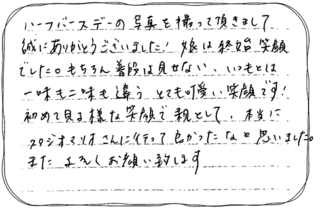 ハーフバースデーの写真を撮って頂きまして
誠にありがとうございました！娘は終始笑顔
でした。もちろん普段は見せない、いつもとは
一味も二味も違う とても可愛い笑顔です！
初めて見る様な笑顔で親として、本当に
スタジオマリオさんに行って良かったなと思いました。
また よろしくお願い致します